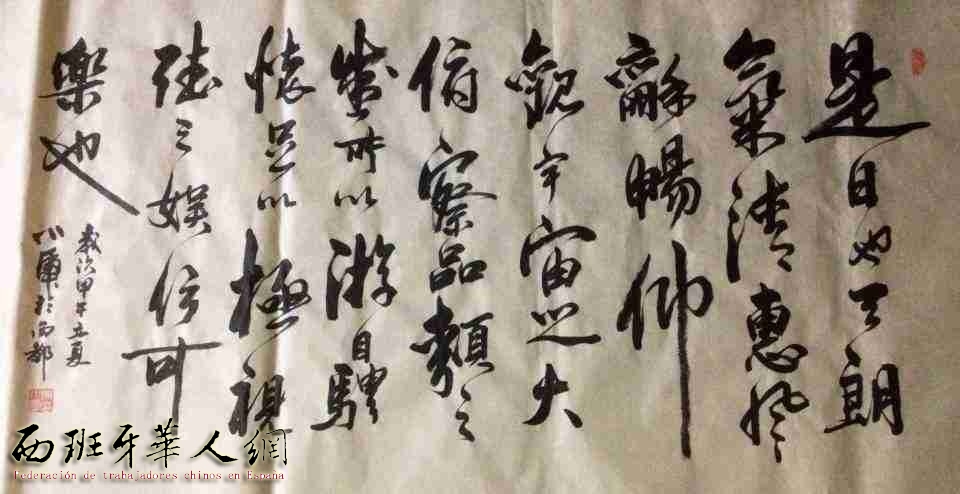 是日也天朗
氣清惠風
龢暢仰
觀宇宙之大
俯察品類之
盛所以游目騁
懷足以極視
聽之娛信可
樂也
歲次甲午立夏
於西都
西班牙華人網
Federación de trabajadores chinos en España